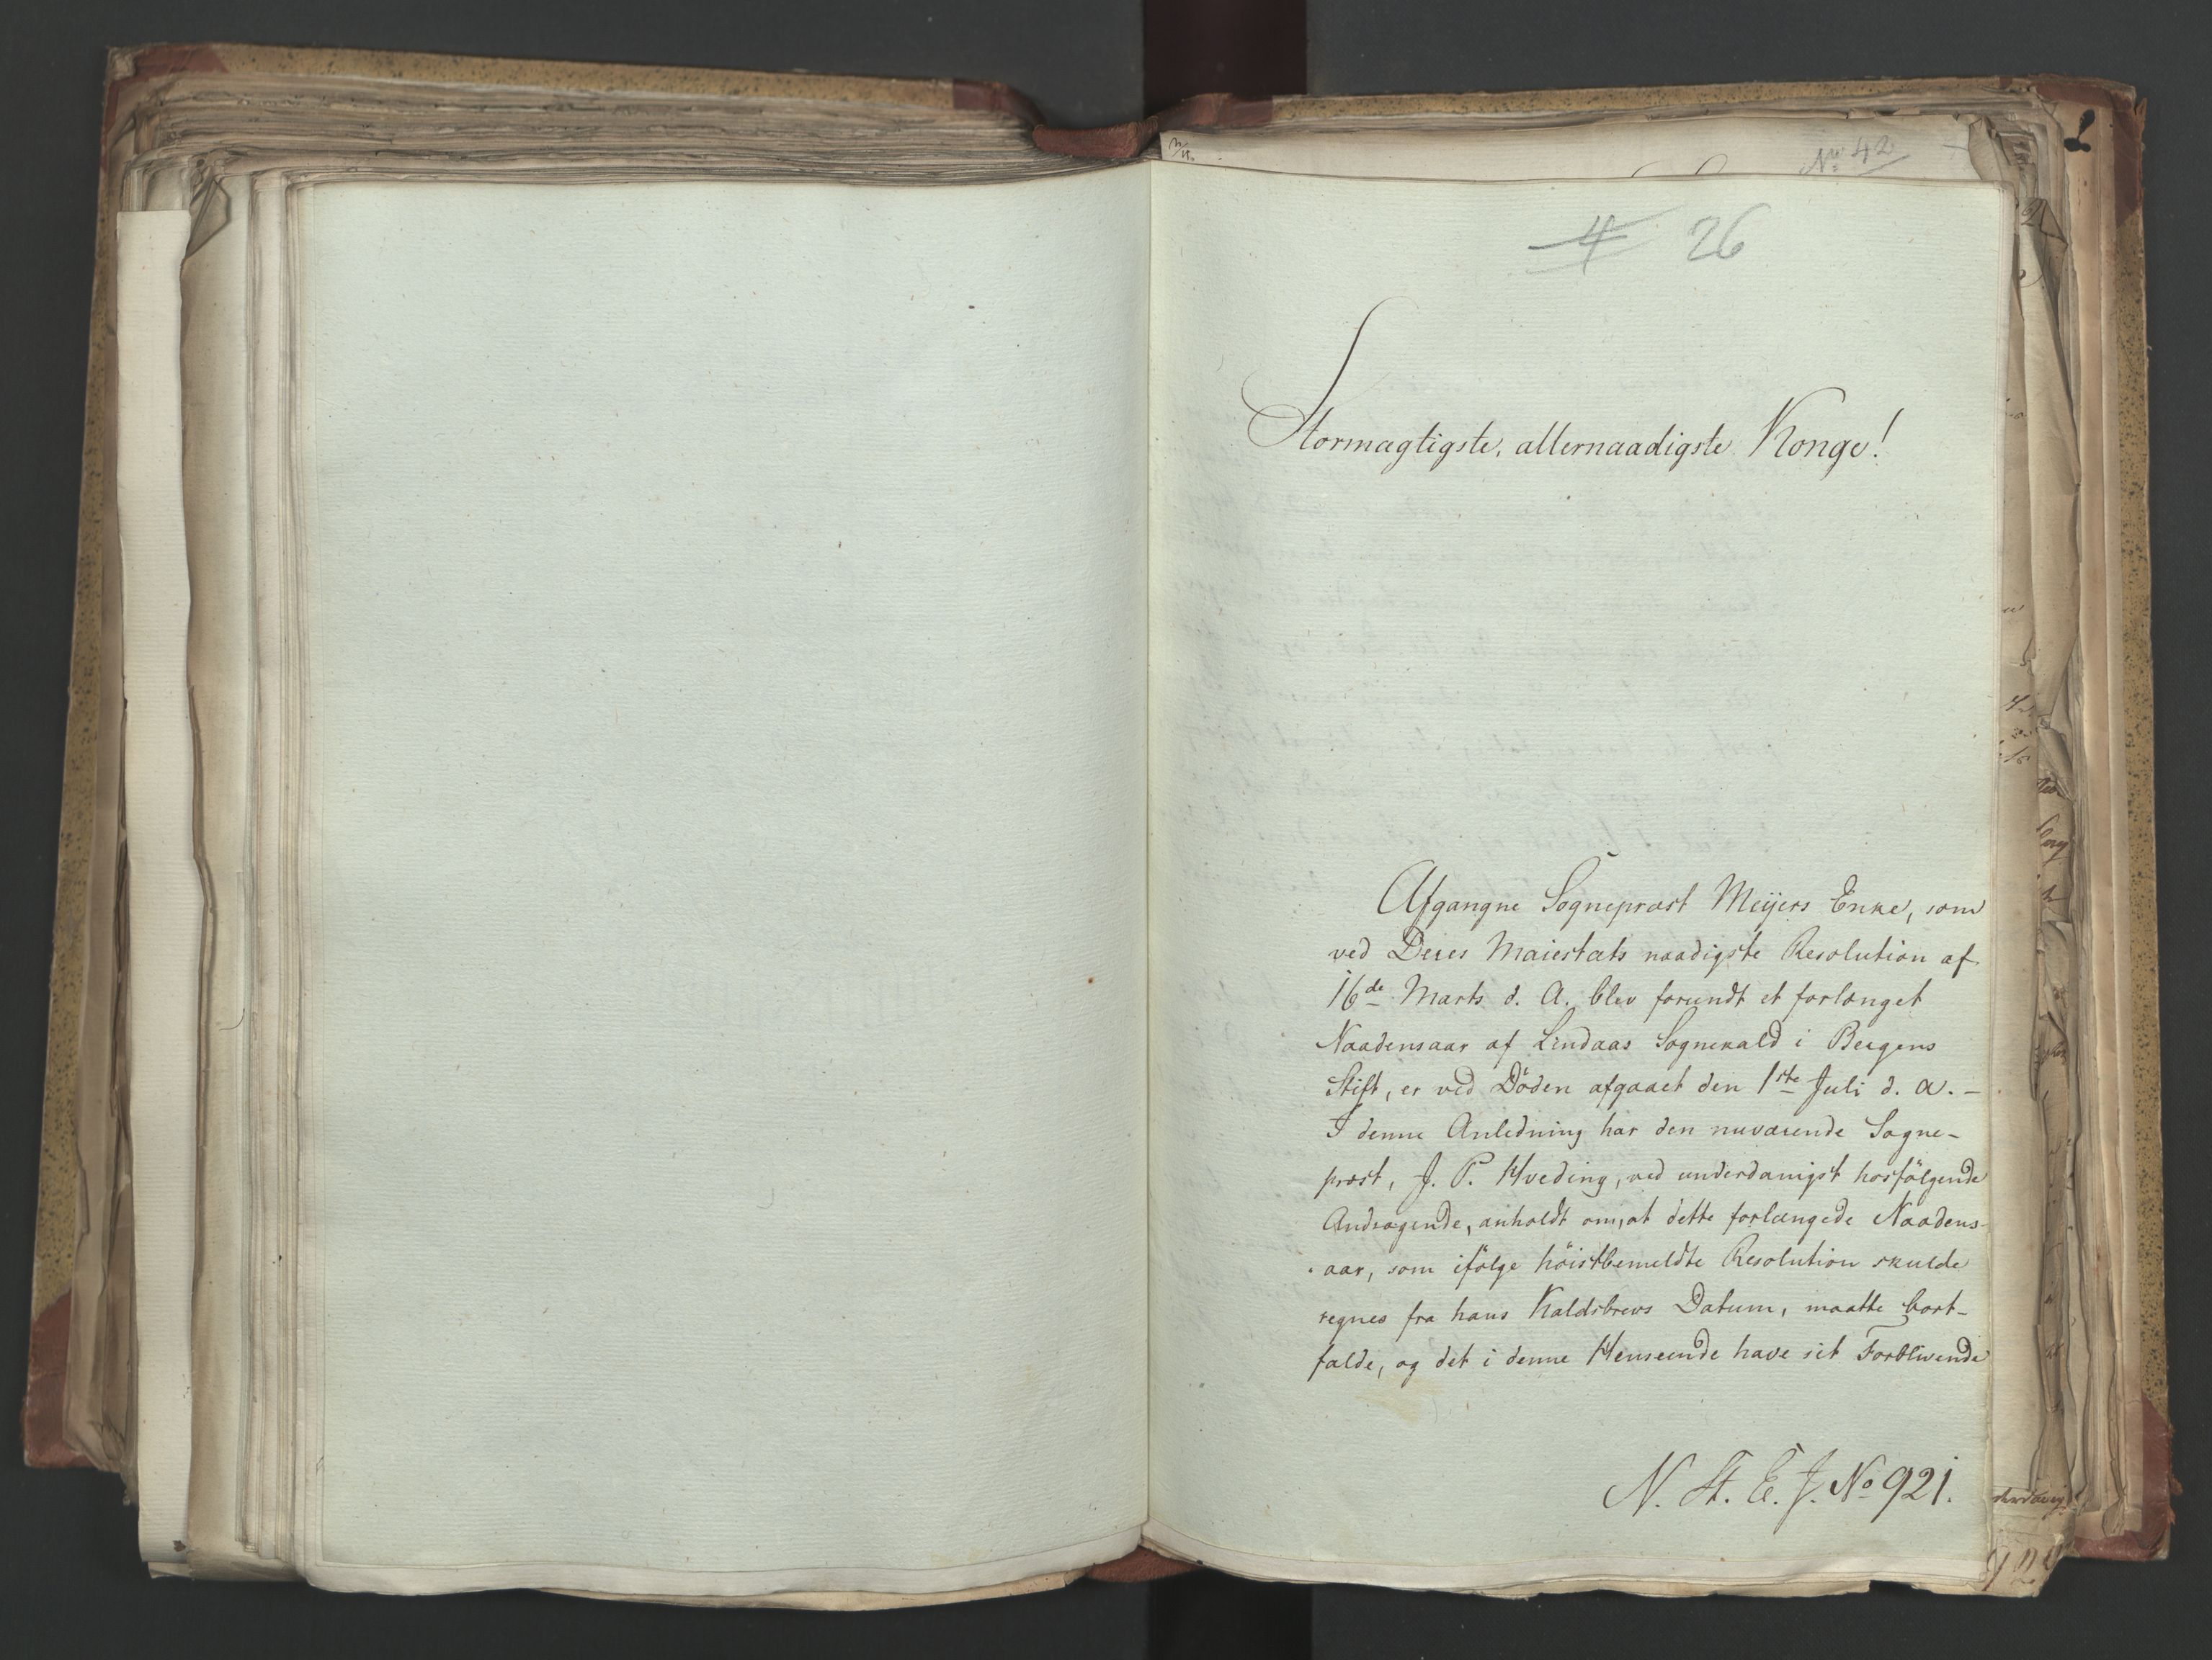 No 42
4 26
Stormagtigste, allernaadigste Konge!
Afgangne Sognepræst Meijers Enke, som
ved Deres Maiestæts naadigste Resolution af
16de Marts d. A. blev forundt et forlænget
Naadensaar af Lindaas Sognekald i Bergens
Stift, er ved Döden afgaaet den 1ste Juli d. A. –
I denne Anledning har den nuværende Sogne-
præst, J. P. Hveding, ved underdanigst hosfölgende
Andragende, anholdt om, at dette forlængede Naadens-
aar, som ifölge höistbemeldte Resolution skulde
regnes fra hans Kaldsbrevs Datum, maatte bort-
falde, og det i denne Henseende have sit Forblivende
N. St. E. J. No 921.